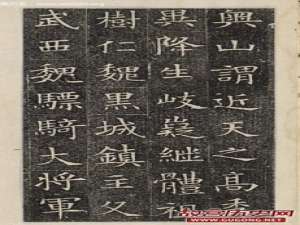 興山謂近天之高秀
異降生岐嶷継體祖
樹仁魏黑城鎮主父
武西魏驃騎大將軍
WWW.GUGONG.NET